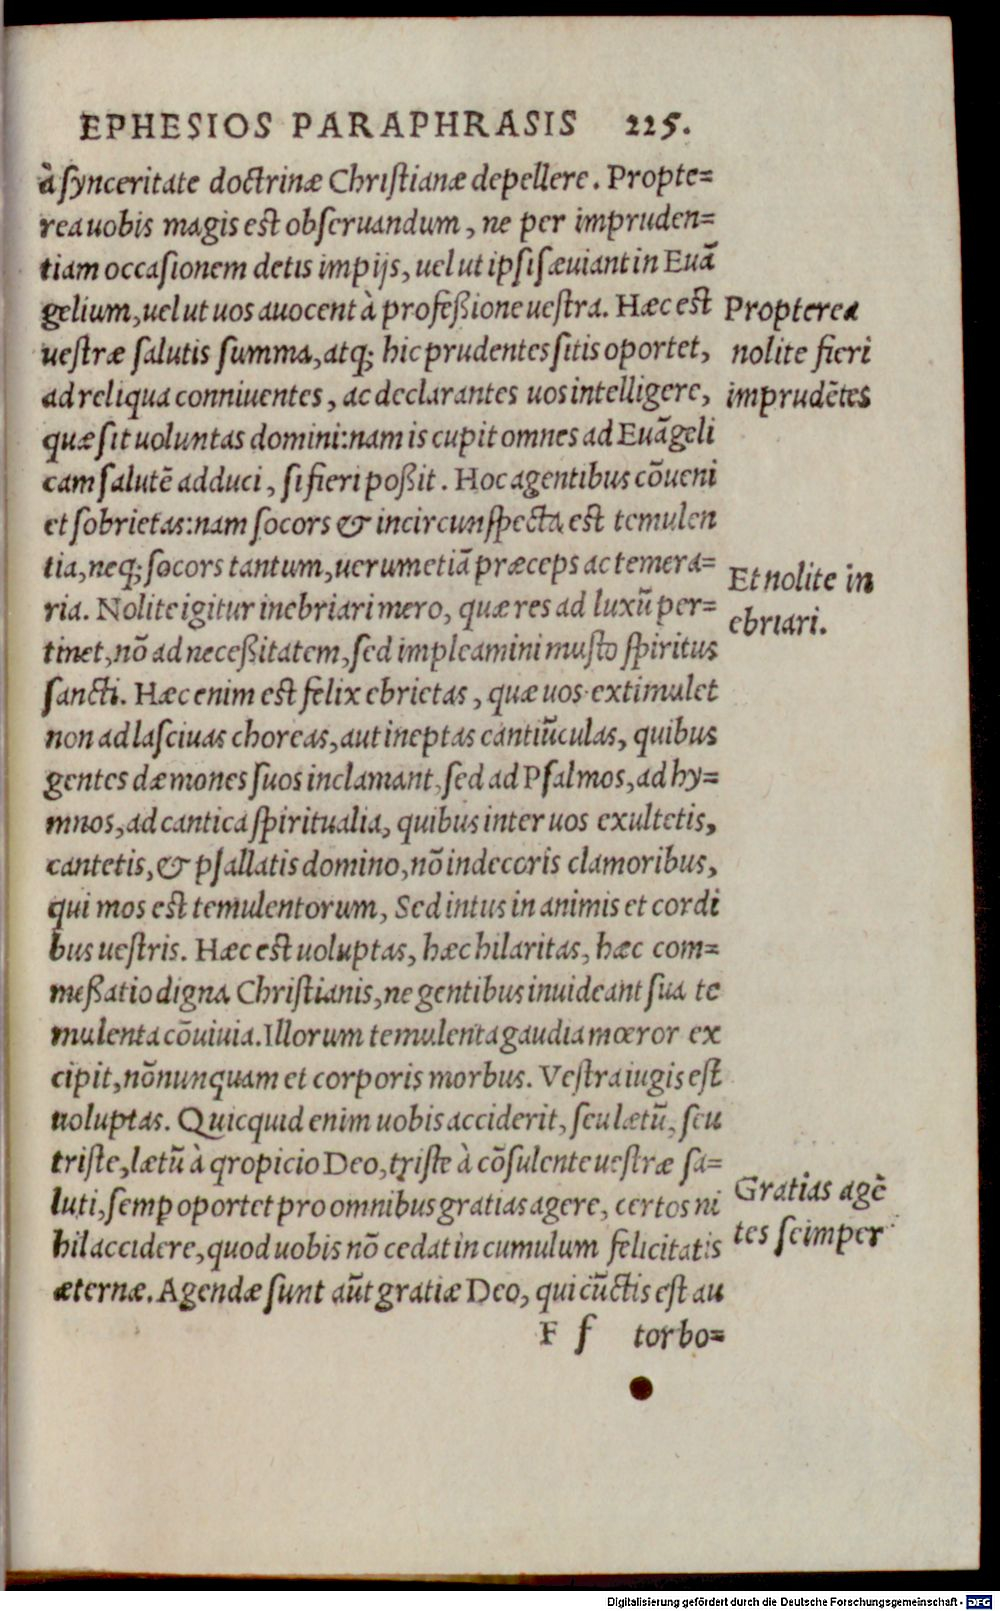 EPHESIOS PARAPHRASIS 225.
à synceritate doctrinæ Christianæ depellere. Propte=
rea uobis magis est obseruandum, ne per impruden=
tiam occasionem detis impijs, uel ut ipsi sæuiant in Euã
gelium, uel ut uos auocent à profeßione uestra. Hæc est
uestræ salutis summa, atq; hic prudentes sitis oportet,
ad reliqua conniuentes, ac declarantes uos intelligere,
quæ sit uoluntas domini: nam is cupit omnes ad Euãgeli
cam salutẽ adduci, si fieri poßit. Hoc agentibus cõueni
et sobrietas: nam socors & incircunspecta est temulen
tia, neq; socors tantum, uerumetiã præceps ac temera=
ria. Nolite igitur inebriari mero, quæ res ad luxũ per=
tinet, nõ ad neceßitatem, sed impleamini musto spiritus
sancti. Hæc enim est felix ebrietas, quæ uos extimulet
non ad lasciuas choreas, aut ineptas cantiũculas, quibus
gentes dæmones suos inclamant, sed ad Psalmos, ad hy=
mnos, ad cantica spiritualia, quibus inter uos exultetis,
cantetis, & psallatis domino, nõ indecoris clamoribus,
qui mos est temulentorum, Sed intus in animis et cordi
bus uestris. Hæc est uoluptas, hæc hilaritas, hæc com=
meßatio digna Christianis, ne gentibus inuideant sua te
mulenta cõuiuia. Illorum temulenta gaudia mœror ex
cipit, nõnunquam et corporis morbus. Vestra iugis est
uoluptas. Quicquid enim uobis acciderit, seu lætũ, seu
triste, lætũ à qropicio Deo, triste à cõsulente uestræ sa=
luti, semp oportet pro omnibus gratias agere, certos ni
hil accidere, quod uobis nõ cedat in cumulum felicitatis
æternæ. Agendæ sunt aũt gratiæ Deo, qui cũctis est au
F f torbo=
Propterea
nolite fieri
imprudẽtes
Et nolite in
ebriari.
Gratias agẽ
tes seimper
Digitalisierung gefördert durch die Deutsche Forschungsgemeinschaft - DFG